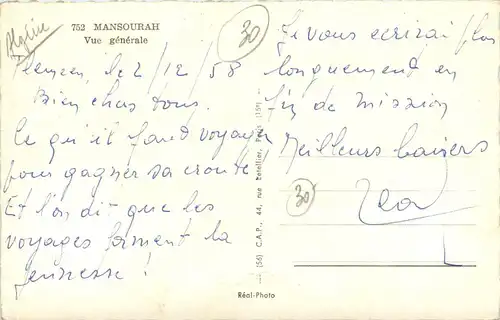 Algérie
752 MANSOURAH
Vue générale
30
Tlemcen, le 2/12/58
Bien chers tous.
Ce qu'il faut voyager
pour gagner sa croute!
Et l'on dit que les
voyages forment la
jeunesse!
(56) C.A.P., 44, rue Letellier, Paris (15e)
Je vous ecrirai plus
longuement en
fin de mission
Meilleurs baisers
30-
Réal-Photo